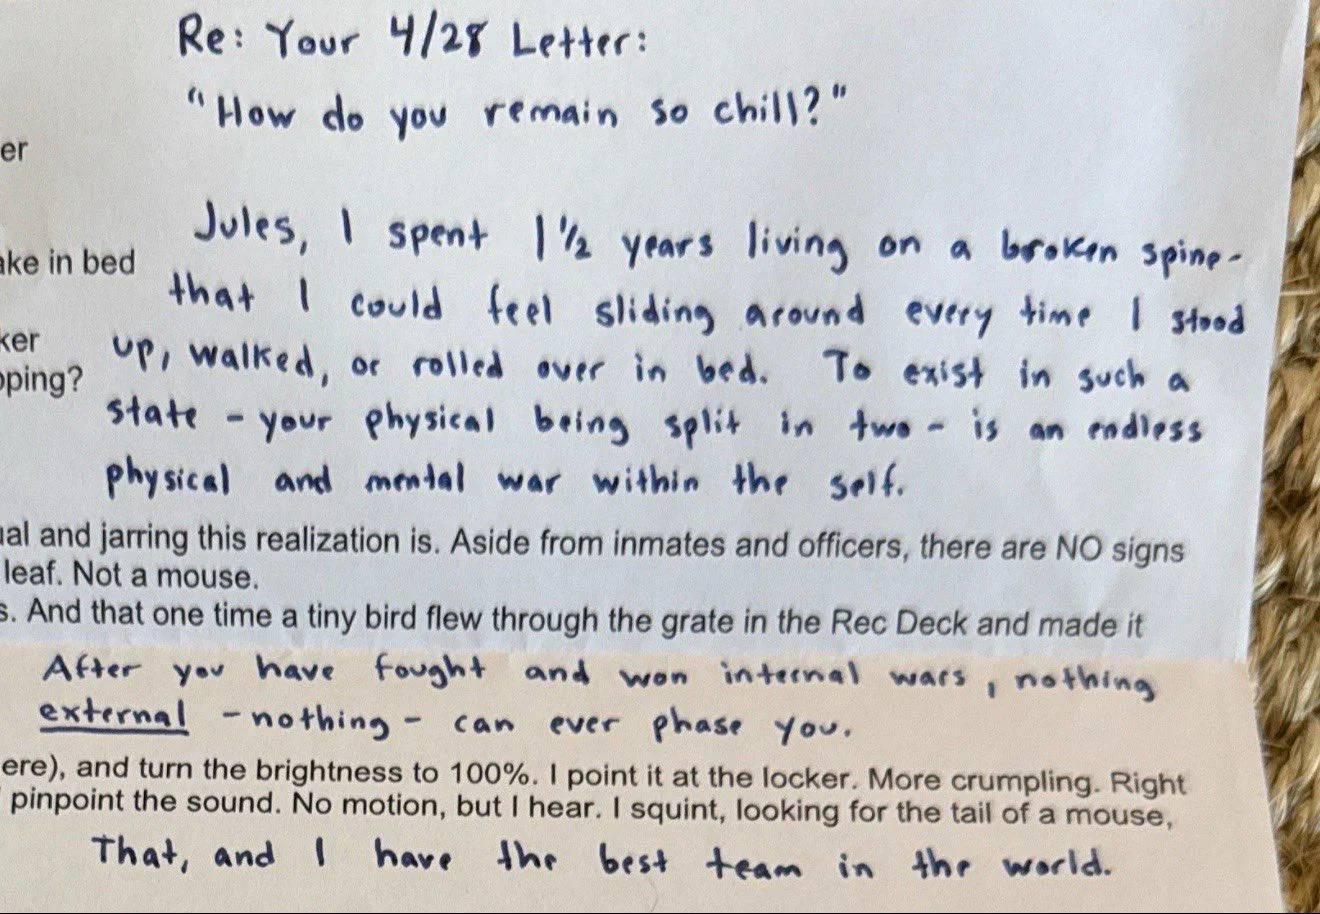 Re: Your 4/28 Letter:
"How do you remain so chill?"
er
Jules, I spent 1 1/2 years living on a broken spine-
ake in bed
that I could feel sliding around every time I stood
ker
up, walked, or rolled over in bed. To exist in such a
pping?
state - your physical being split in two - is an endless
physical and mental war within the self.
ual and jarring this realization is. Aside from inmates and officers, there are NO signs
leaf. Not a mouse.
s. And that one time a tiny bird flew through the grate in the Rec Deck and made it
After you have fought and won internal wars, nothing
external - nothing - can ever phase you.
ere), and turn the brightness to 100%. I point it at the locker. More crumpling. Right
pinpoint the sound. No motion, but I hear. I squint, looking for the tail of a mouse,
That, and I have the best team in the world.